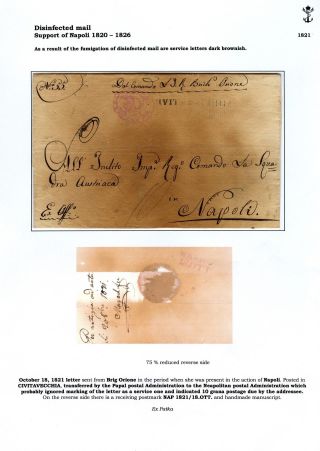 Disinfected mail
Support of Napoli 1820 – 1826
1821
As a result of the fumigation of disinfected mail are service letters dark brownish.
Dal Comando
All Inclito Imp. Reg. Comando La Squa
dra Austriaca
in
Ex Offo
Napoli.
75 % reduced reverse side
October 18, 1821 letter sent from Brig Orione in the period when she was present in the action of Napoli. Posted in
CIVITAVECCHIA, transferred by the Papal postal Administration to the Neapolitan postal Administration which
probably ignored marking of the letter as a service one and indicated 10 grana postage due by the addressee.
On the reverse side there is a receiving postmark NAP 1821/18.OTT. and handwrite manuscript.
Ex Patka